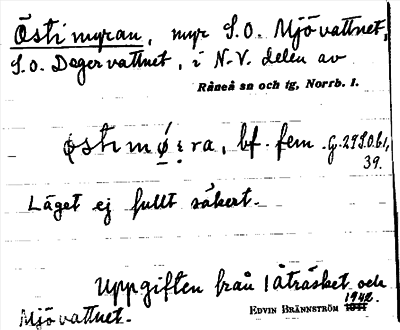 Östimyran, myr S.O. Mjövattnet,
S.O. Degervattnet, i N.V. delen av
Råneå sn och tg, Norrb. l.
östimø̣ɛra, bf. fem. G. 29 S.O. b.1,
39.
Läget ej fullt säkert.
Uppgiften från Påträsket och
Mjövattnet.
EDVIN BRÄNNSTRÖM 1942.